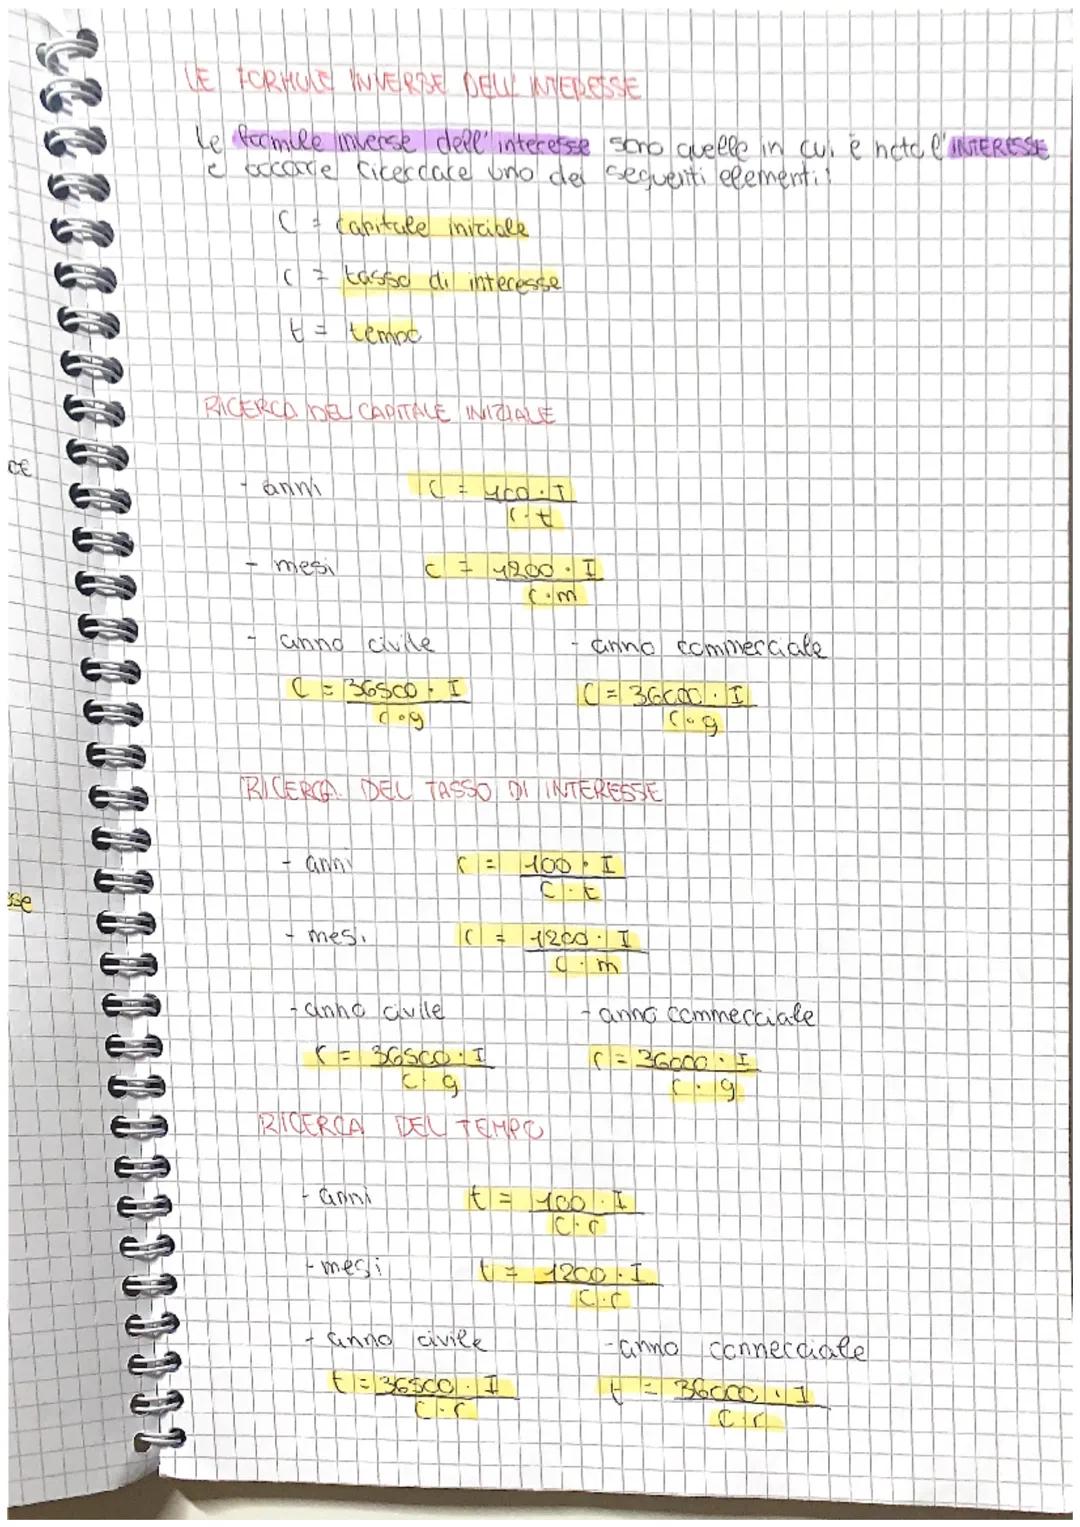 CE
sse
LE FORMULE INVERSE DELL'INTERESSE
Le formule inverse dell'interesse sono quelle in cui è noto l'INTERESSE
e occorre ricercare uno dei seguenti elementi:
C = capitale iniziale
r = tasso di interesse
t = tempo
RICERCA DEL CAPITALE INIZIALE
- anni C = 100 · I
r · t
- mesi C = 1200 · I
r · m
- anno civile - anno commerciale
C = 36500 · I C = 36000 · I
r · g r · g
RICERCA DEL TASSO DI INTERESSE
- anni r = 100 · I
C · t
- mesi r = 1200 · I
C · m
- anno civile - anno commerciale
r = 36500 · I r = 36000 · I
C · g C · g
RICERCA DEL TEMPO
- anni t = 100 · I
C · r
- mesi t = 1200 · I
C · r
- anno civile - anno commerciale
t = 36500 · I t = 36000 · I
C · r C · r